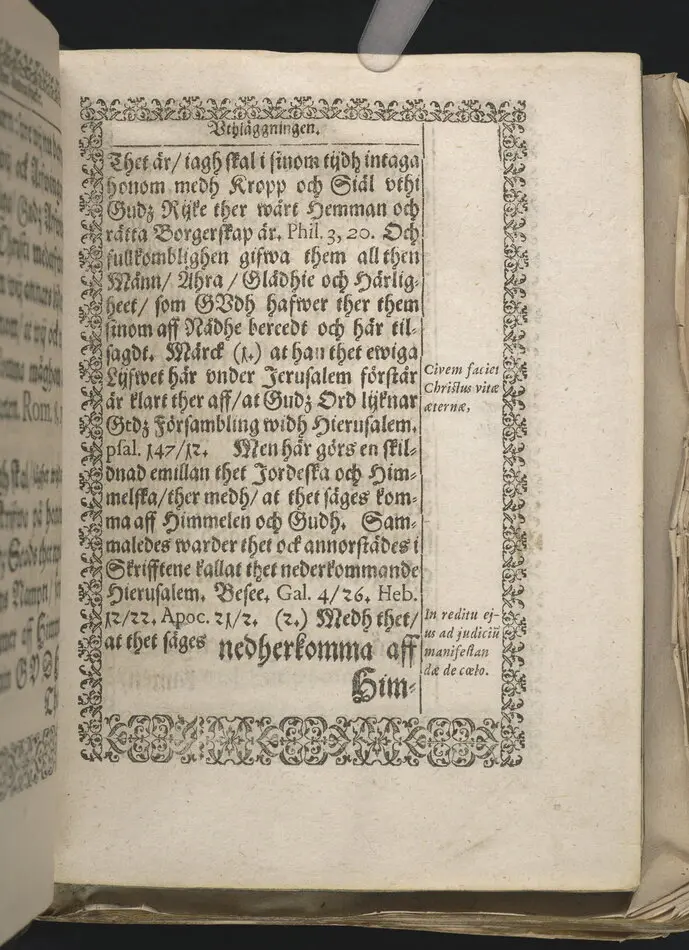 Vthläggningen.
Thet är/ iagh skal i sinom tijdh intaga
honom medh Kropp och Siäl vthi
Gudz Rijke ther wårt Hemman och
rätta Borgerskap är. Phil. 3, 20. Och
fullkomblighen gifwa them all then
Männ/ Ähra / Glädhie och Härlig-
heet/ som GVdh hafwer ther them
sinom aff Nådhe beredt och här til-
sagdt. Märck (1.) at han thet ewiga
Lijfwet här vnder Jerusalem förstår
är klart ther aff/at Gudz Ord lijknar
Gudz Försambling widh Hierusalem.
psal. 147/12. Men här görs en skil-
dnad emillan thet Jordeska och Him-
melska/ther medh/ at thet säges kom-
ma aff Himmelen och Gudh. Sam-
maledes warder thet ock annorstädes i
Skrifftene kallat thet nederkommande
Hierusalem. Besee. Gal. 4/26. Heb.
12/22. Apoc. 21/2. (2.) Medh thet/
at thet säges nedherkomma aff
Him-
Civem faciet
Christus vitæ
æternæ,
In reditu ej-
us ad judiciū
manifestan
dæ de cœlo.
Rom. 8,